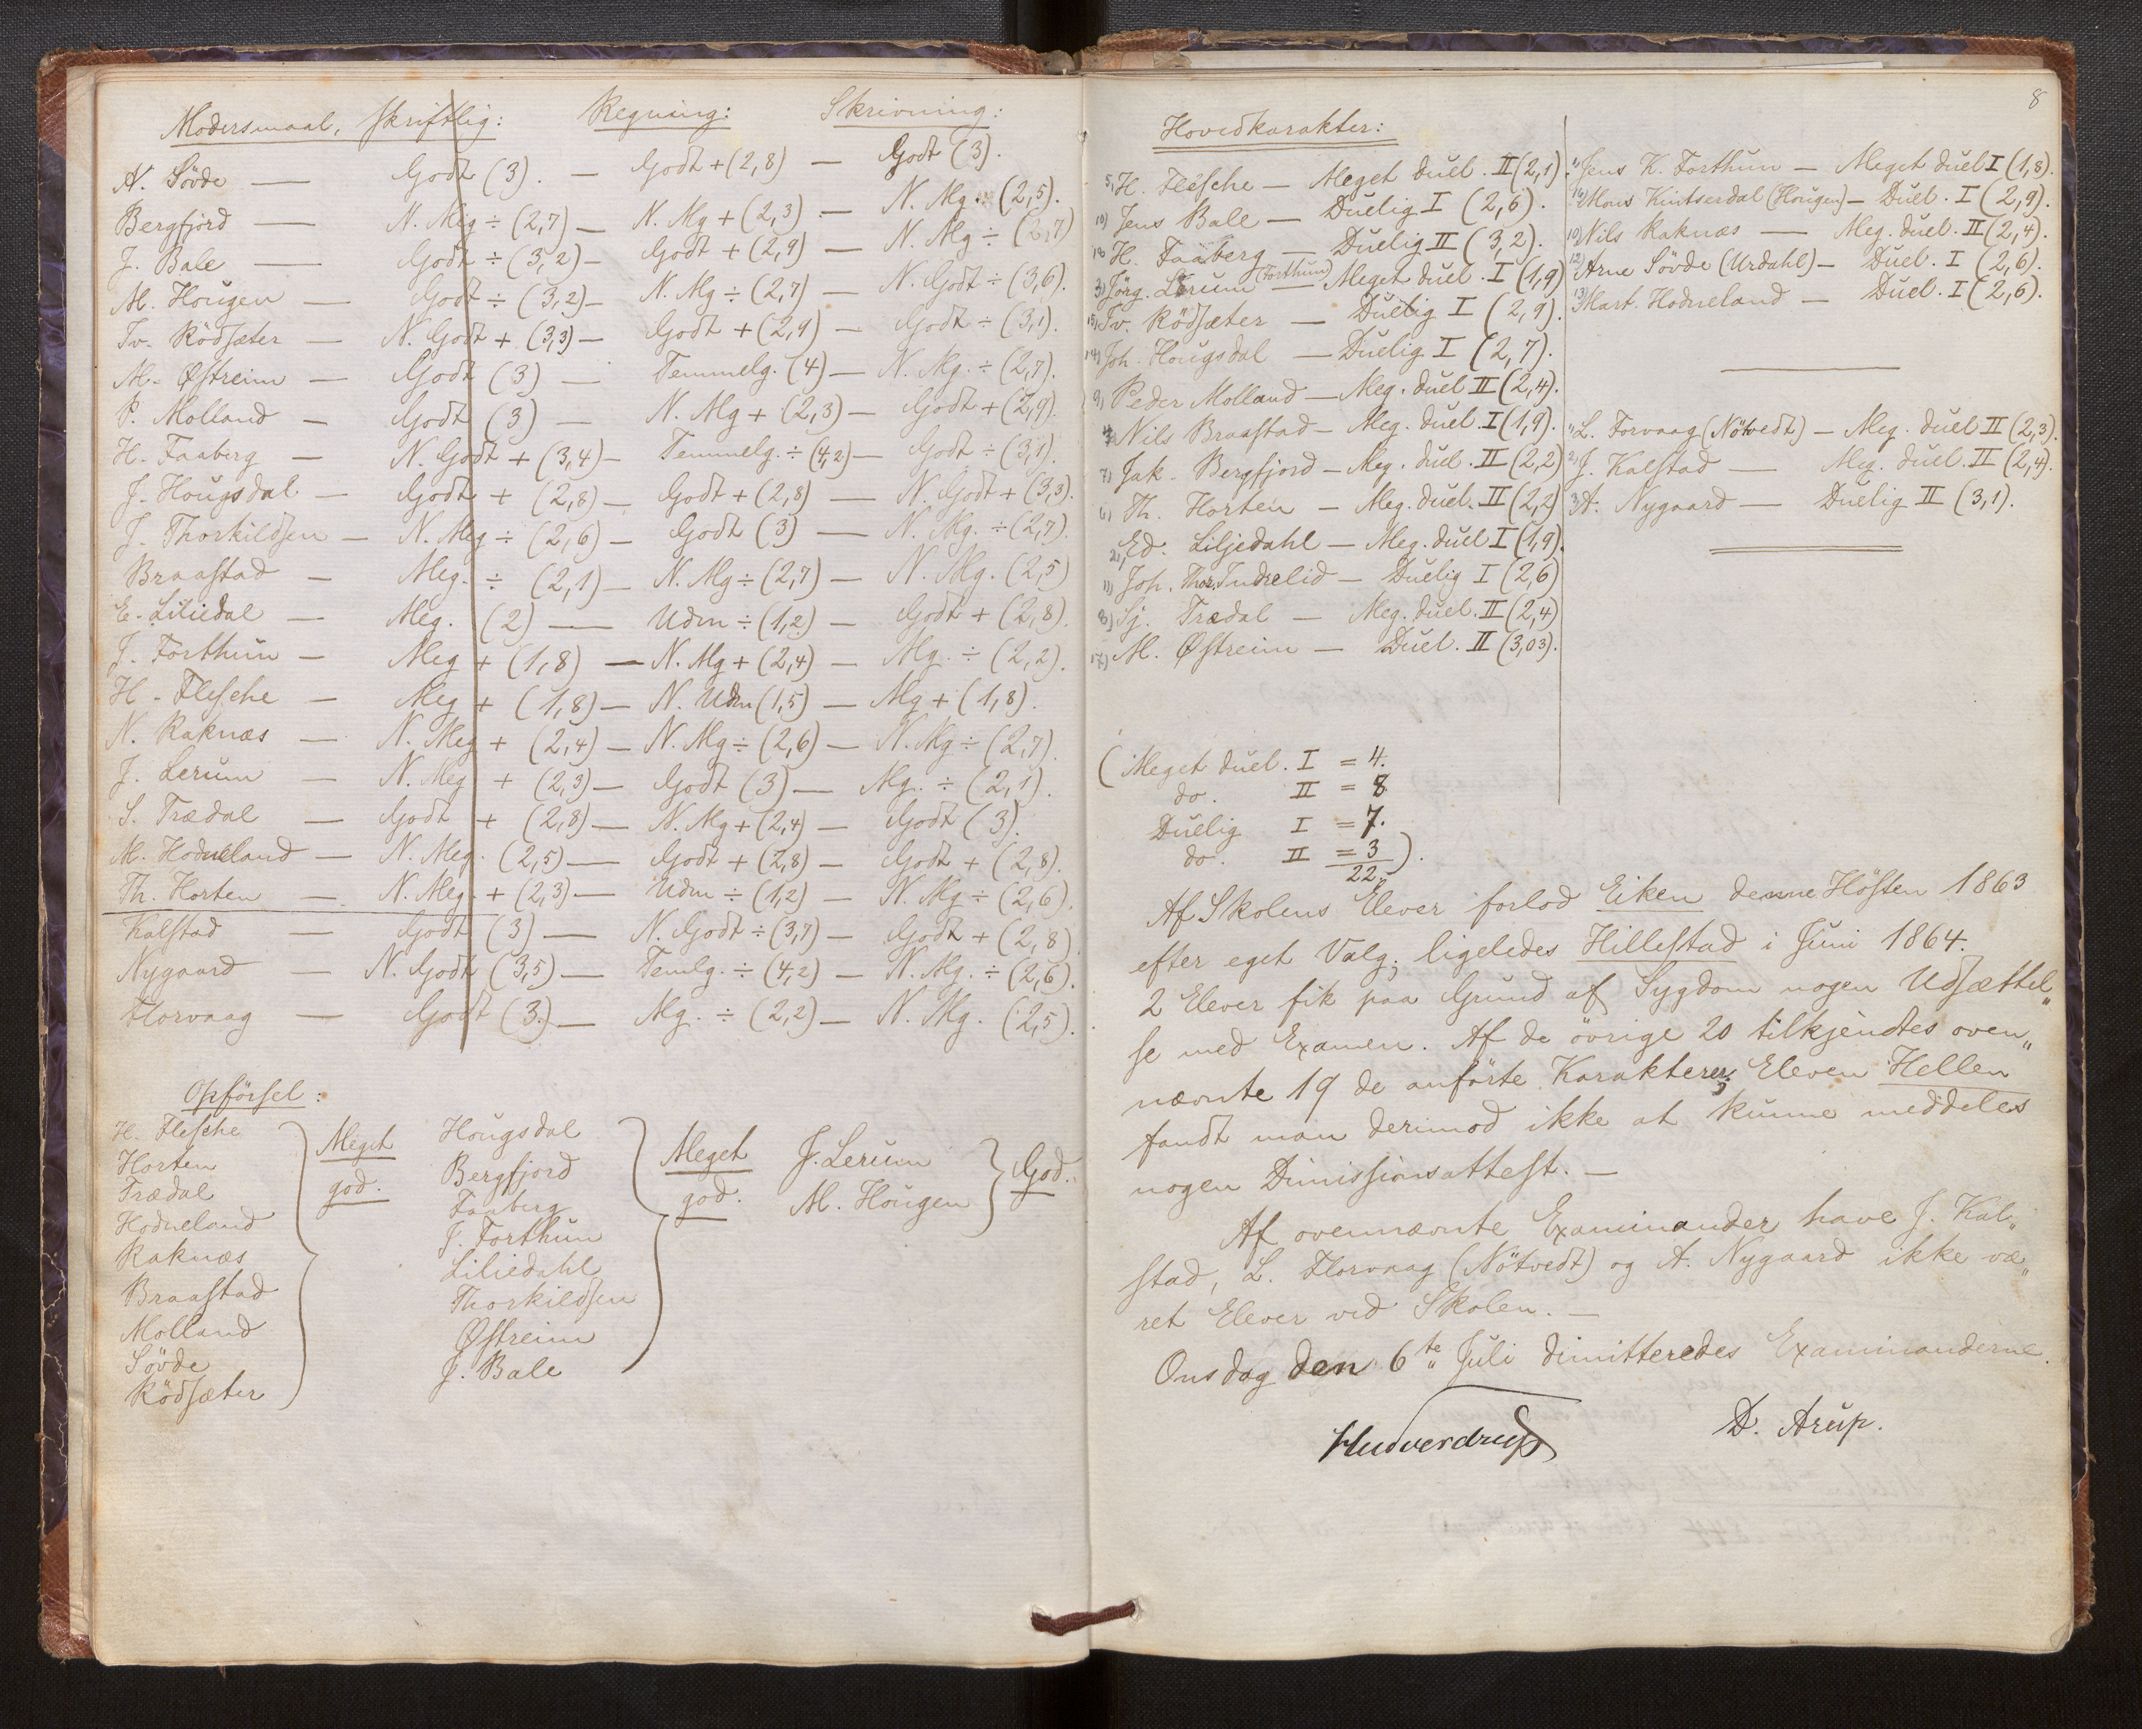 Modersmaal, skriftlig: Regning: Skrivning:
A. Sövde — Godt (3). — Godt + (2,8) — Godt (3).
Bergfjord — N. Meg ÷ (2,7) — N. Mg + (2,3) — N. Mg. (2,5).
J. Bale — Godt ÷ (3,2) — Godt + (2,9) — N. Mg ÷ (2,7)
M. Hougen — Godt ÷ (3,2) — N. Mg ÷ (2,7) — N. Godt ÷ (3,6).
Tv. Rödsæter — N. Godt + (3,3) — Godt + (2,9) — Godt ÷ (3,1).
M. Østreim — Godt (3) — Temmelg. (4) — N. Mg. ÷ (2,7).
P. Molland — Godt (3) — N. Mg + (2,3) — Godt + (2,9).
H. Faaberg — N. Godt + (3,4) — Temmelg. ÷ (4,2) — Godt ÷ (3,1).
J. Hougsdal — Godt + (2,8) — Godt + (2,8) — N. Godt + (3,3).
J. Thorkildsen — N. Meg ÷ (2,6) — Godt (3) — N. Mg. ÷ (2,7).
Braastad — Meg. ÷ (2,1) — N. Mg ÷ (2,7) — N. Mg. (2,5)
E. Liliedal — Meg. (2) — Udm ÷ (1,2) — Godt + (2,8).
J. Forthun — Meg + (1,8) — N. Mg + (2,4) — Mg. ÷ (2,2).
H. Flesche — Meg + (1,8) — N. Udm (1,5) — Mg + (1,8).
N. Raknæs — N. Meg + (2,4) — N. Mg ÷ (2,6) — N. Mg ÷ (2,7).
J. Lerum — N. Meg + (2,3) — Godt (3) — Mg. ÷ (2,1).
S. Trædal — Godt + (2,8) — N. Mg + (2,4) — Godt (3).
M. Hodneland — N. Meg. (2,5) — Godt + (2,8) — Godt + (2,8).
Th. Horten — N. Meg. + (2,3) — Udm ÷ (1,2) — N. Mg ÷ (2,6).
Kalstad — Godt (3) — N. Godt ÷ (3,7) — Godt + (2,8)
Nygaard — N. Godt (3,5) — Temlg. ÷ (4,2) — N. Mg. ÷ (2,6).
Florvaag — Godt (3.) — Mg. ÷ (2,2) — N. Mg. (2,5).
Opförsel:
H. Flesche
Horten
Trædal
Hodneland
Raknæs
Braastad
Molland
Sövde
Rödsæter
Meget
god.
Hougsdal
Bergfjord
Faaberg
J. Forthun
Liliedahl
Thorkildsen
Østreim
J. Bale
Meget
god.
J. Lerum
M. Hougen
God.
8
Hovedkarakter:
5) H. Flesche — Meget duel. II (2,1).
10) Jens Bale — Duelig I (2,6).
18 H. Faaberg — Duelig II (3,2).
3) Jörg. Lerum (Forthun) — Meget duel. I (1,9)
15) Tv. Rödsæter — Duelig I (2,9).
14) Joh. Hougsdal — Duelig I (2,7).
9) Peder Molland — Meg. duel II (2,4).
4 Nils Braastad — Meg. duel. I (1,9).
7) Jak. Bergfjord — Meg. duel. II (2,2)
6) Th. Horten — Meg. duel. II (2,2)
2) Ed. Liljedahl — Meg. duel I (1,9).
11) Joh. Thor. Indrelid — Duelig I (2,6)
8) Sj. Trædal — Meg. duel. II (2,4)
17) M. Østreim — Duel. II (3,03).
1) Jens K. Forthun — Meget duel I (1,8).
16) Mons Kintserdal (Hougen) — Duel. I (2,9).
10) Nils Raknæs — Meg. duel. II (2,4).
12) Arne Sövde (Urdahl) — Duel. I (2,6).
13) Mart. Hodneland — Duel. I (2,6).
1) L. Forvaag (Nötvedt) — Meg. duel II (2,3).
2) J. Kalstad — Meg. duel. II (2,4).
3) A. Nygaard — Duelig II (3,1).
(Meget duel. I = 4.
do. II = 8
Duelig I = 7.
do. II = 3).
22
Af Skolens Elever forlod Eiken denne Hösten 1863
efter eget Valg; ligeledes Hillestad i Juni 1864.
2 Elever fik paa Grund af Sygdom nogen Udsættel„
se med Examen. Af de övrige 20 tilkjendtes oven„
nævnte 19 de anförte Karakterer; Eleven Hellen
fandt man derimod ikke at kunne meddeles
nogen Dimissionsattest. —
Af ovennævnte Examinander have J. Kal„
stad, L. Florvaag (Nötvedt) og A. Nygaard ikke væ„
ret Elever ved Skolen. —
Onsdag den 6te Juli dimitteredes Examinanderne.
D. Arup.